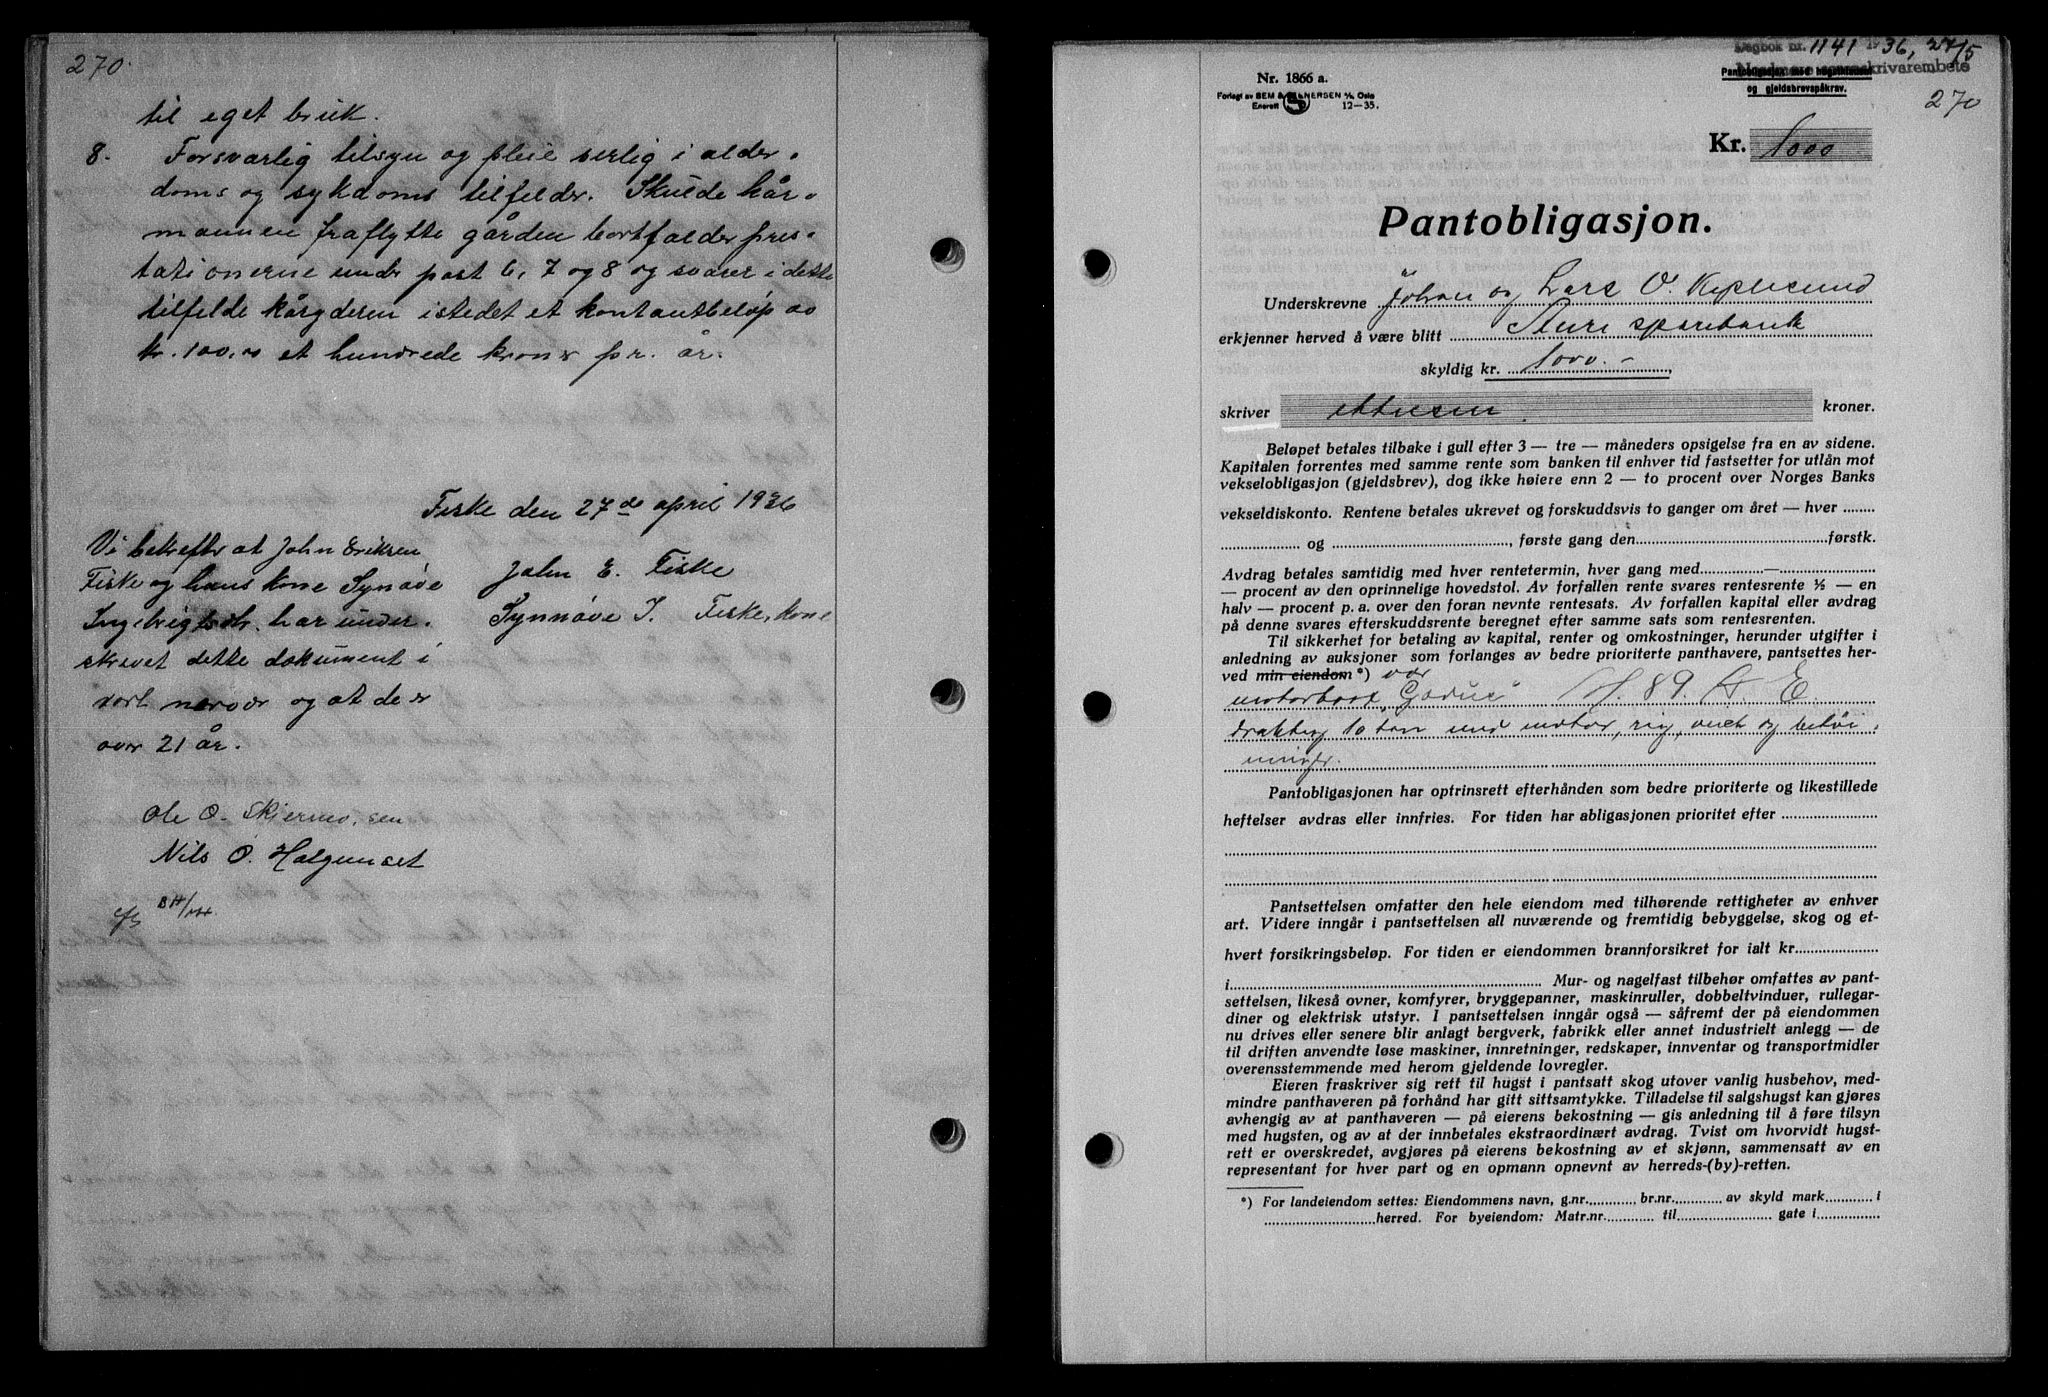 270.
til eget bruk.
8. Forsvarlig tilsyn og pleie serlig i alder-
doms og sykdoms tilfelder. Skulde kår-
mannen fraflytte gården bortfalder pres-
tationerne under post 6, 7 og 8 og svarer i dette
tilfelde kårgderen istedet et kontantbeløp av
kr. 100,00 et hundrede kroner pr. år.
Fiske den 27de april 1936
Vi bekrefter at John Eriksen
Fiske og hans kone Synøve
Ingebrigtsdtr. har under-
skrevet dette dokument i
vort nærvær og at de er
over 21 år.
John E. Fiske
Synnøve I. Fiske, kone
Ole O. Skjermo, sen
Nils O. Halgunset
Dagbok nr. 1141 1936, 27/5
Nordmøre sorenskrivarembete
Nr. 1866 a.
Forlagt av SEM & STENERSEN A/S, Oslo
Enerett 12-35.
Pantobligasjon med hugstklausul
og gjeldsbrevspåkrav.
270
Kr. 1000
Pantobligasjon.
Underskrevne Johan og Lars O.
erkjenner herved å være blitt Aure sparebank
skyldig kr. 1000.-,
skriver ettusen kroner.
Beløpet betales tilbake i gull efter 3 — tre — måneders opsigelse fra en av sidene.
Kapitalen forrentes med samme rente som banken til enhver tid fastsetter for utlån mot
vekselobligasjon (gjeldsbrev), dog ikke høiere enn 2 — to procent over Norges Banks
vekseldiskonto. Rentene betales ukrevet og forskuddsvis to ganger om året — hver ........
.............. og ................................, første gang den................................førstk.
Avdrag betales samtidig med hver rentetermin, hver gang med............—............
— procent av den oprinnelige hovedstol. Av forfallen rente svares rentesrente ½ — en
halv — procent p. a. over den foran nevnte rentesats. Av forfallen kapital eller avdrag
på denne svares efterskuddsrente beregnet efter samme sats som rentesrenten.
Til sikkerhet for betaling av kapital, renter og omkostninger, herunder utgifter i
anledning av auksjoner som forlanges av bedre prioriterte panthavere, pantsettes her-
ved min eiendom *) vår
motorbåt "Gadus" M. 89. A. E.
drektig 10 ton med motor, rig, vnet og bekvæ-
ninger.
Pantobligasjonen har optrinsrett efterhånden som bedre prioriterte og likestillede
heftelser avdras eller innfries. For tiden har abligasjonen prioritet efter ................
Pantsettelsen omfatter den hele eiendom med tilhørende rettigheter av enhver
art. Videre inngår i pantsettelsen all nuværende og fremtidig bebyggelse, skog og et-
hvert forsikringsbeløp. For tiden er eiendommen brannforsikret for ialt kr..............
i.............................................................. Mur- og nagelfast tilbehør omfattes av pant-
settelsen, likeså ovner, komfyrer, bryggepanner, maskinruller, dobbeltvinduer, rullegar-
diner og elektrisk utstyr. I pantsettelsen inngår også — såfremt der på eiendommen
nu drives eller senere blir anlagt bergverk, fabrikk eller annet industrielt anlegg — de
til driften anvendte løse maskiner, innretninger, redskaper, innventar og transportmidler
overensstemmende med herom gjeldende lovregler.
Eieren fraskriver sig rett til hugst i pantsatt skog utover vanlig husbehov, med-
mindre panthaveren på forhånd har gitt sittsamtykke. Tilladelse til salgshugst kan gjøres
avhengig av at panthaveren — på eierens bekostning — gis anledning til å føre tilsyn
med hugsten, og av at der innbetales ekstraordinært avdrag. Tvist om hvorvidt hugst-
rett er overskredet, avgjøres på eierens bekostning av et skjønn, sammensatt av en
representant for hver part og en opmann opnevnt av herreds-(by)-retten.
*) For landeiendom settes: Eiendommens navn, g.nr............ br.nr............ av skyld mark............ i
........................herred. For byeiendom: Matr.nr............ til............ gate i............